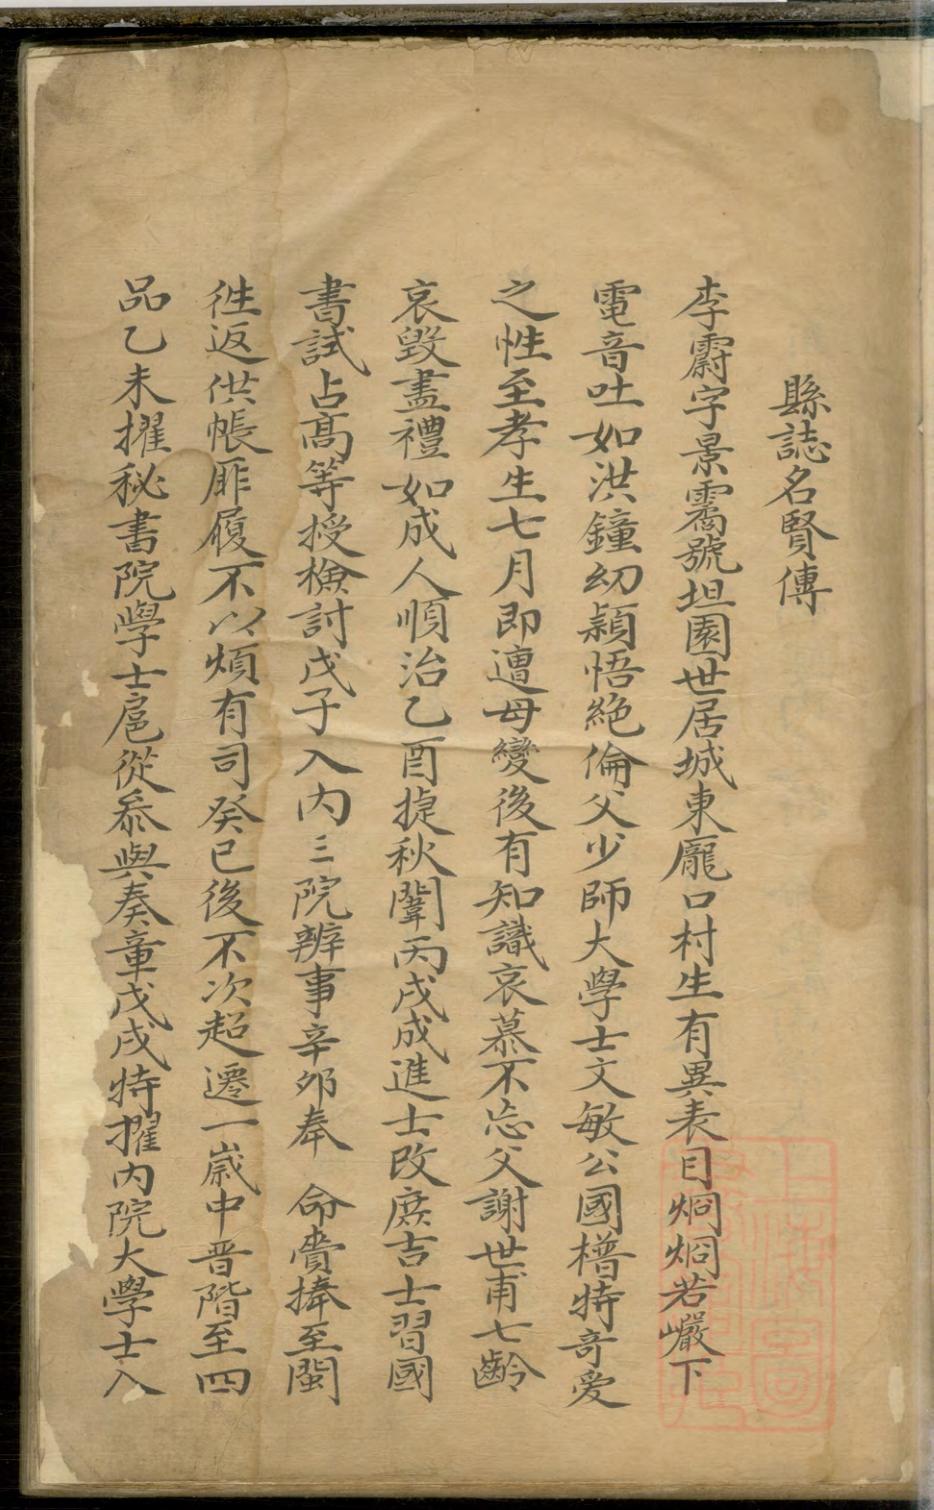 縣誌名賢傳
李霨字景霱號坦園世居城東龐口村生有異表目烱烱若巖下
電音吐如洪鐘幼穎悟絶倫父少師大學士文敏公國𣚴特奇愛
之性至孝生七月即遭母變後有知識哀慕不忘父謝世甫七齡
哀毀盡禮如成人順治乙酉㨗秋闈丙戌成進士改庶吉士習國
書試占髙等授檢討戊子入内三院辨事辛夘奉　命賫捧至閩
徃返供帳屝履不以煩有司癸巳後不次超遷一歲中晋階至四
品乙未擢秘書院學士扈從叅與奏章戊戌特擢内院大學士入